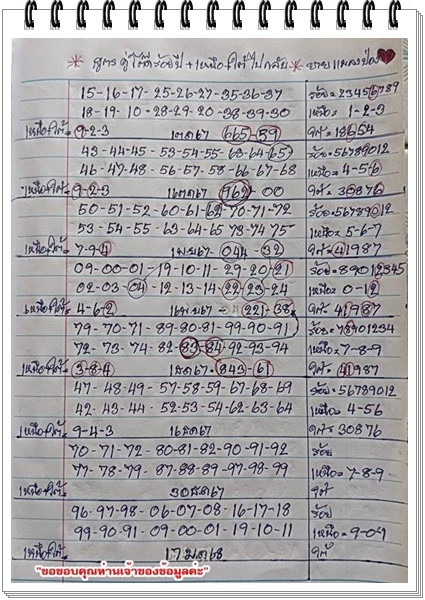 สูตร คู่โต๊ดร้อยปี + เหนือใต้ไปกลับ
15-16-17-25-26-27-35-36-37 ร้อย=23456789
18-19-10-28-29-20-38-39-30 เหนือ=1-2-3
เหนือ/ใต้= 9-2-3 1ตค67 665-59 ใต้=18654
43-44-45-53-54-55-63-64-65 ร้อย=56789012
46-47-48-56-57-58-66-67-68 เหนือ=4-5-6
เหนือ/ใต้= 9-2-3 16ตค67 962-00 ใต้=30876
50-51-52-60-61-62-70-71-72 ร้อย=56789012
53-54-55-63-64-65-73-74-75 เหนือ=5-6-7
เหนือ/ใต้= 7-9-4 1พย67-044-32 ใต้=41987
09-00-01-19-10-11-29-20-21 ร้อย=89012345
02-03-04-12-13-14-22-23-24 เหนือ=0-12
เหนือ/ใต้= 4-6-2 16พย67-221-38 ใต้=41987
79-70-71-89-80-81-99-90-91 ร้อย=78901234
72-73-74-82-83-84-92-93-94 เหนือ=7-8-9
เหนือ/ใต้= 3-8-4 1ธค67-843-61 ใต้=41987
47-48-49-57-58-59-67-68-69 ร้อย=56789012
42-43-44-52-53-54-62-63-64 เหนือ=4-56
เหนือ/ใต้= 9-4-3 16ธค67 ใต้=30876
70-71-72-80-81-82-90-91-92 ร้อย
77-78-79-87-88-89-97-98-99 เหนือ=7-8-9
เหนือ/ใต้= 30ธค67 ใต้
96-97-98-06-07-08-16-17-18 ร้อย
99-90-91-09-00-01-19-10-11 เหนือ=9-0-1
เหนือ/ใต้= 17มค68 ใต้
"ขอขอบคุณท่านเจ้าของข้อมูลค่ะ"